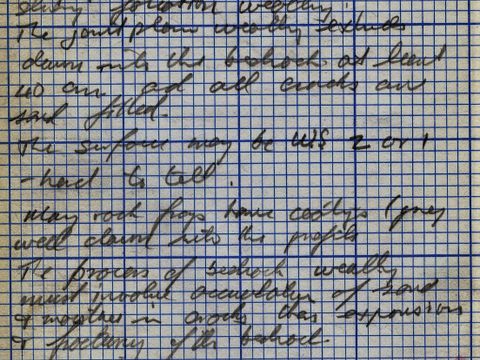 The joint plane weakly extends
down into the bedrock at least
40 cm and all cracks are
sand filled.
The surface may be WS 2 or 1
- hard to tell.
Many rock frags have coatings (grey
well down into the profile
The process of bedrock
must involve accumulation of sand
& moisture in cracks thus expansion
& of the bedrock.